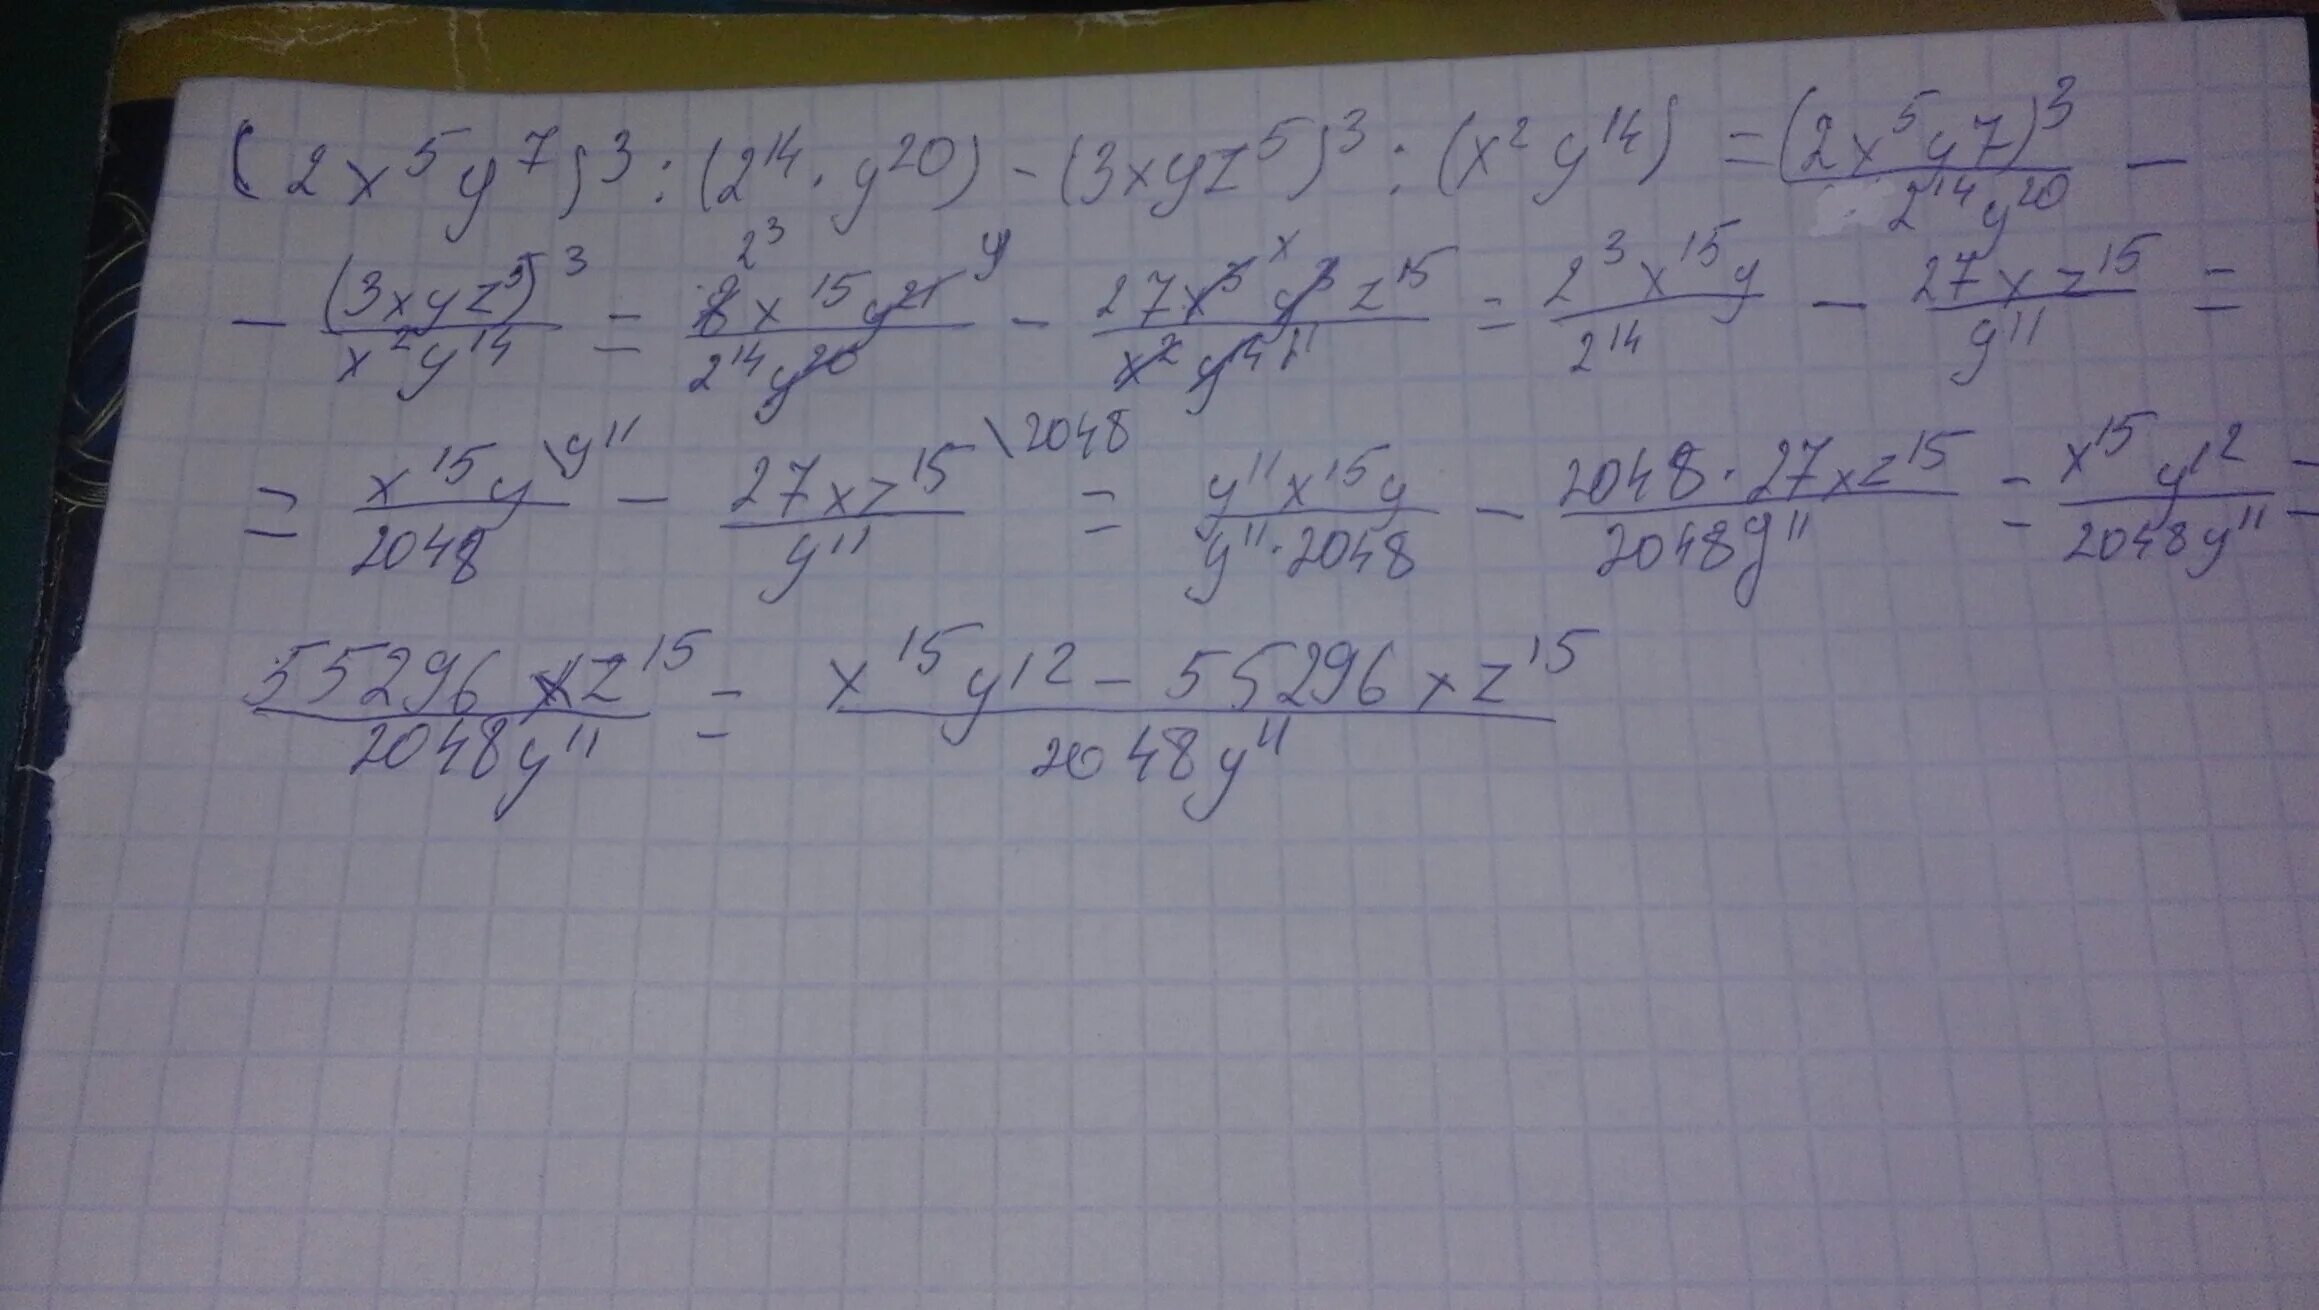 (2x⁵y⁷)³ : (2¹⁴ · y²⁰) − (3xyz⁵)³ : (x²y¹⁴) = (2x⁵y7)³ / 2¹⁴y²⁰ −
− (3xyz⁵)³ / x²y¹⁴ = 8 2³ x¹⁵y²¹ y / 2¹⁴y²⁰ − 27x³ x y³z¹⁵ / x²y¹⁴ ¹¹ = 2³x¹⁵y / 2¹⁴ − 27xz¹⁵ / y¹¹ =
= x¹⁵y \y¹¹ / 2048 − 27xz¹⁵ \2048 / y¹¹ = y¹¹x¹⁵y / y¹¹·2048 − 2048·27xz¹⁵ / 2048y¹¹ = x¹⁵y¹² / 2048y¹¹ −
55296xz¹⁵ / 2048y¹¹ = x¹⁵y¹² − 55296xz¹⁵ / 2048y¹¹